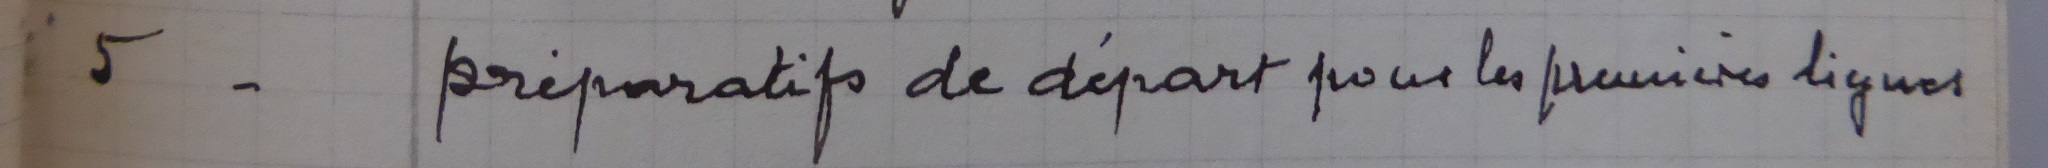 5 - préparatifs de départ pour les premières lignes